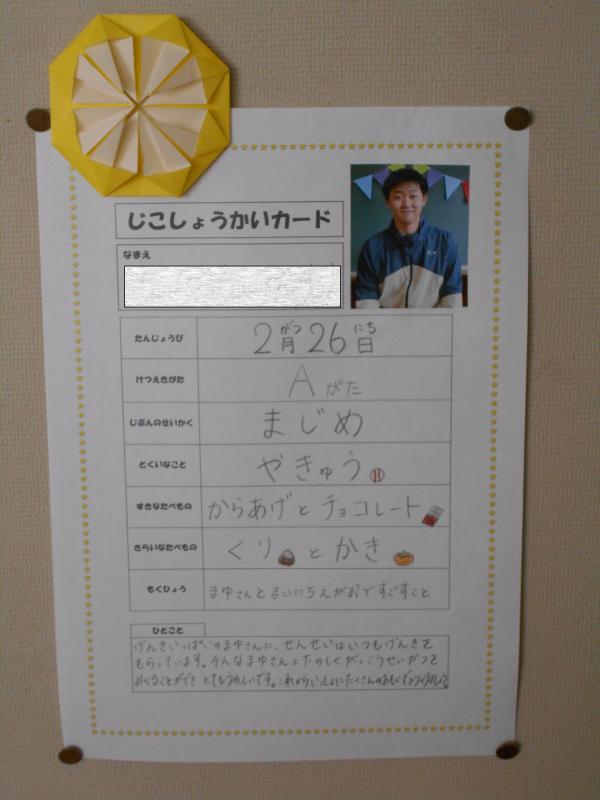 じこしょうかいカード
なまえ
たんじょうび 2月26日
がつ にち
けつえきがた Aがた
じぶんのせいかく まじめ
とくいなこと やきゅう
すきなたべもの からあげとチョコレート
きらいなたべもの くりとかき
もくひょう まゆさんとまいにちえがおですごすこと
ひとこと
げんきいっぱいのまゆさんに、せんせいはいつもげんきを
もらっています。そんなまゆさんとたのしくがっこうせいかつを
おくることができ とてもうれしいです。これからいっしょにたくさんのおもいでをつくりましょう。